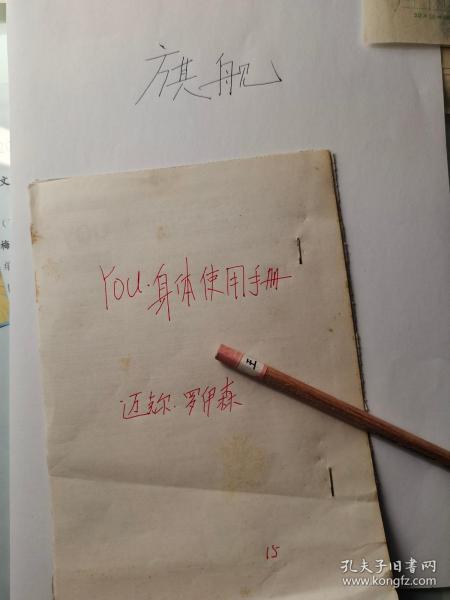 旗舰
YOU·身体使用手册
迈克尔·罗伊森
15
孔夫子旧书网
www.kongfz.com